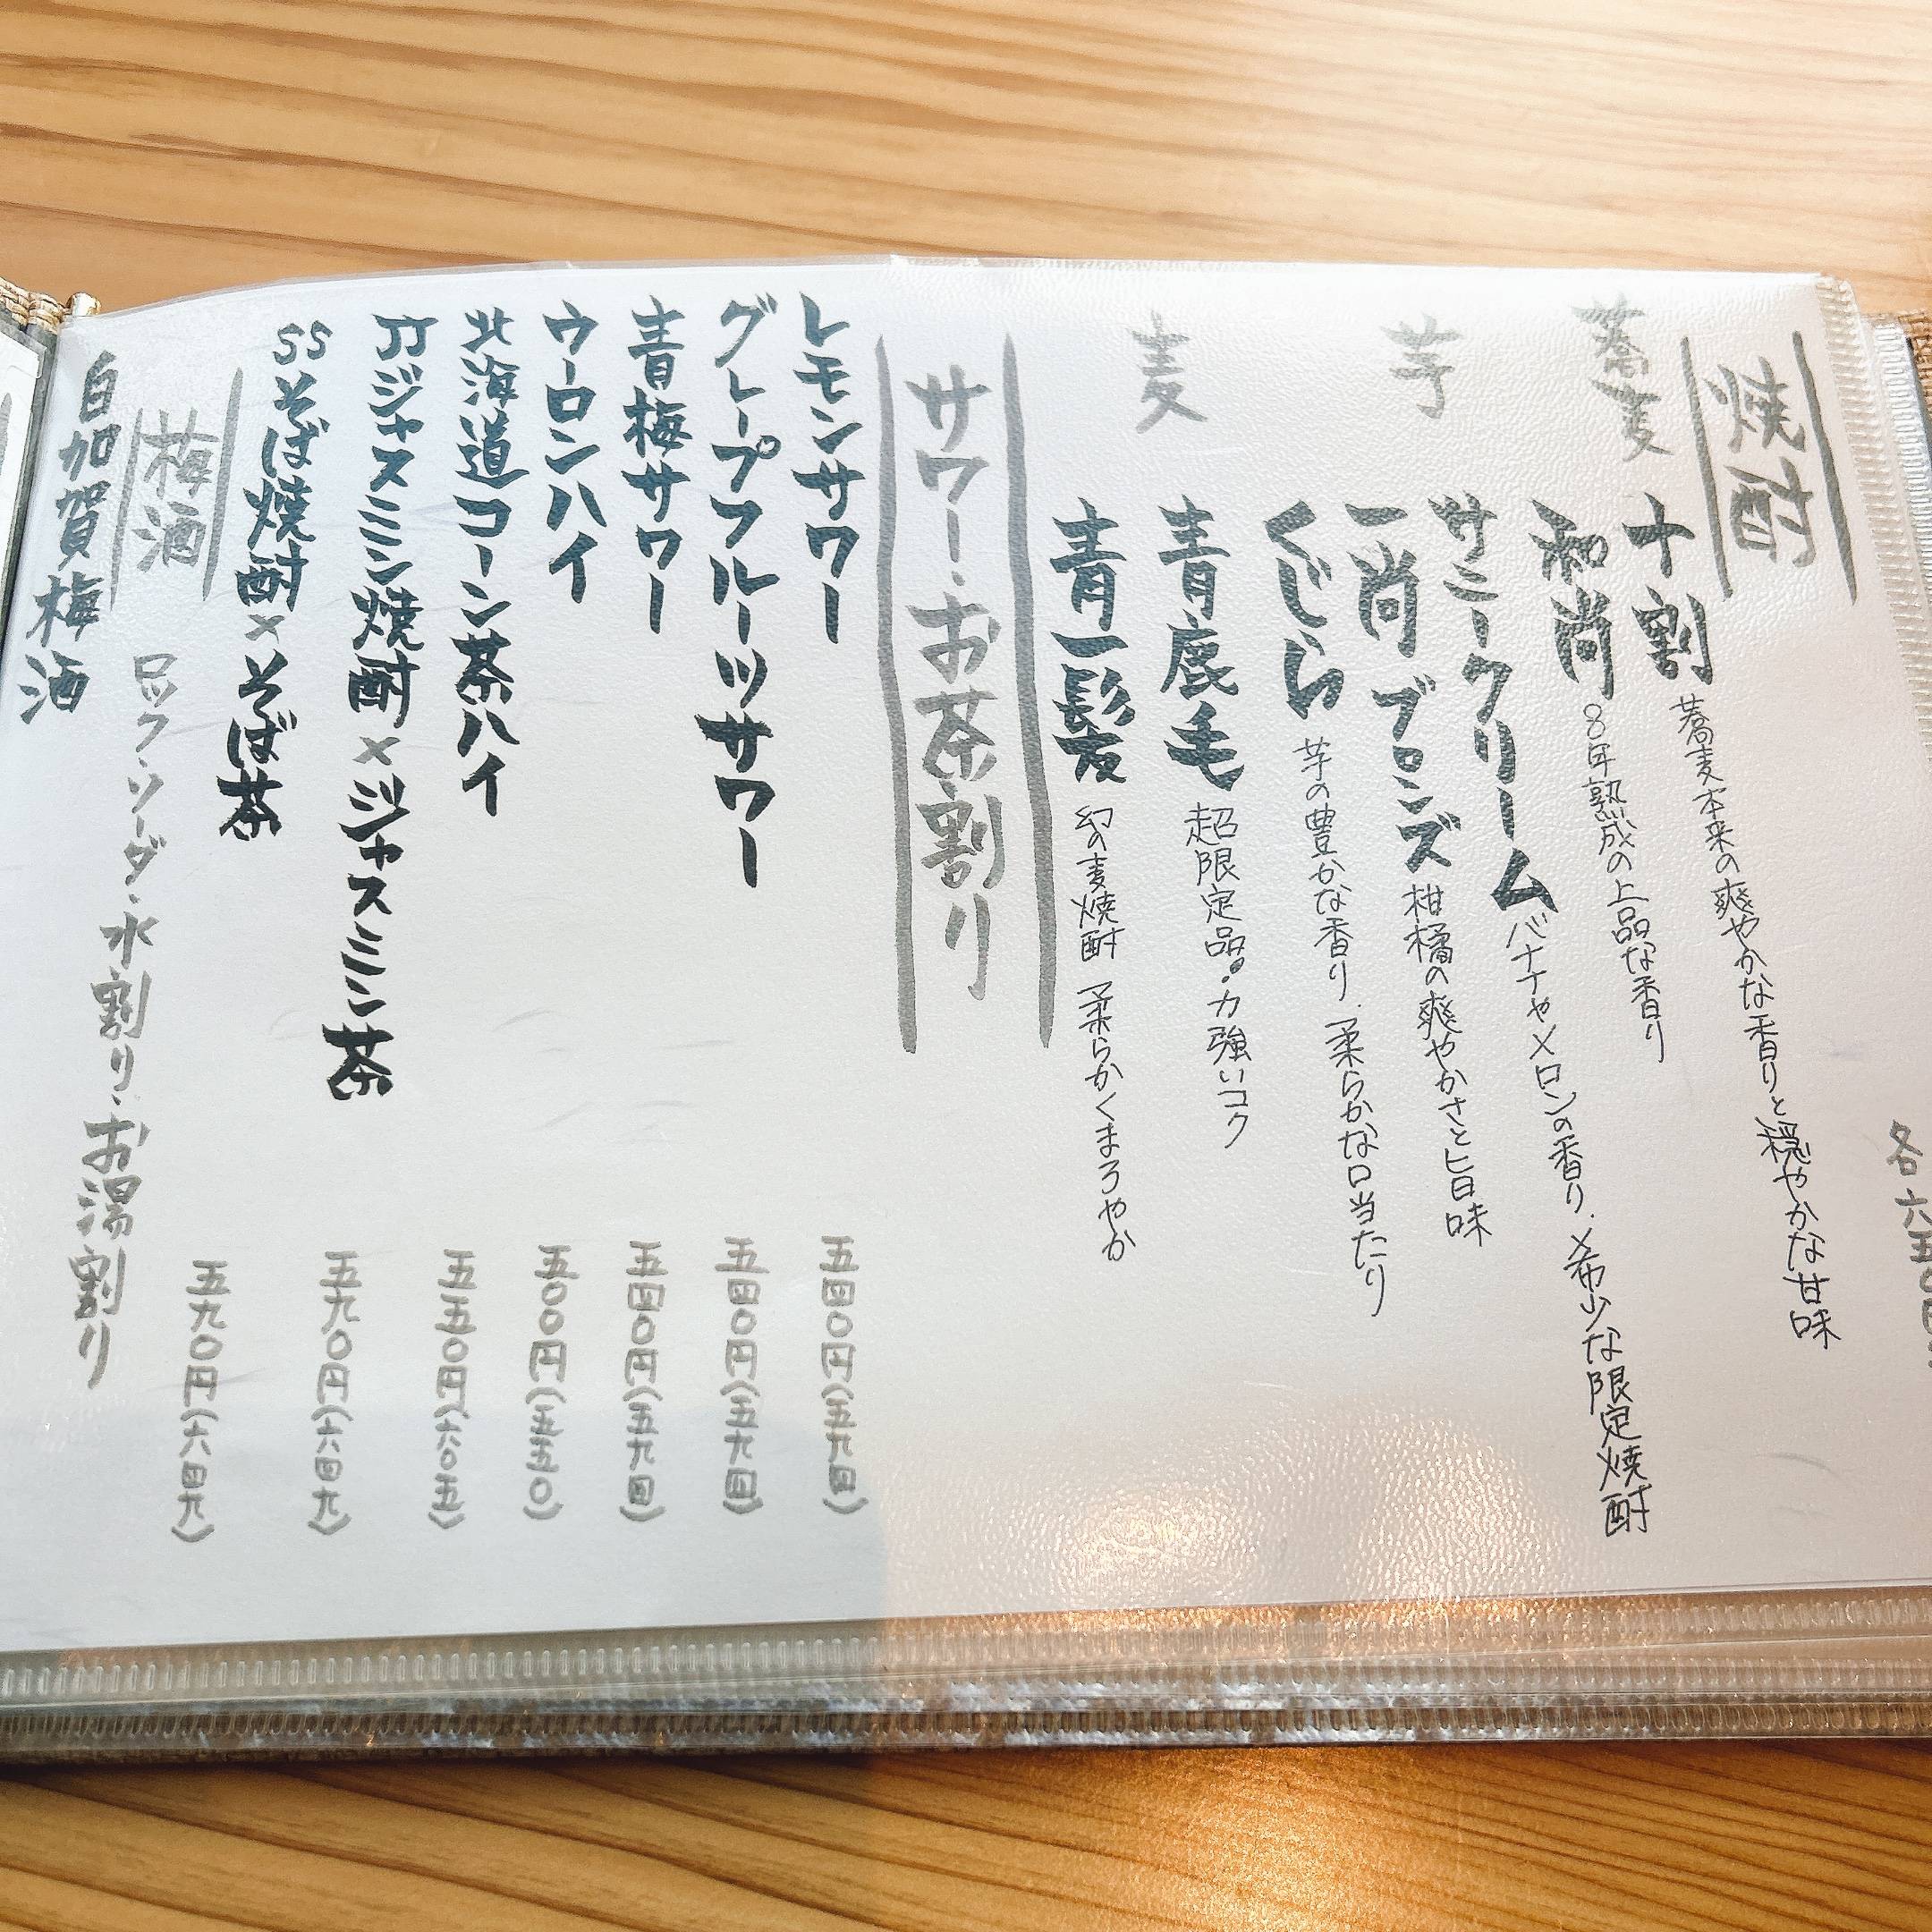 各六五〇円
焼酎
蕎麦
十割 蕎麦本来の爽やかな香りと穏やかな甘味
和尚 8年熟成の上品な香り
芋
サニークリーム バナナやメロンの香り.×希少な限定焼酎
一尚ブロンズ 柑橘の爽やかさと旨味
くじら 芋の豊かな香り.柔らかな口当たり
麦
青鹿毛 超限定品・力強いコク
青一髪 幻の麦焼酎 柔らかくまろやか
サワー・お茶割り
レモンサワー 五四〇円(五九四)
グレープフルーツサワー 五四〇円(五九四)
青梅サワー 五四〇円(五九四)
ウーロンハイ 五〇〇円(五五〇)
北海道コーン茶ハイ 五五〇円(六〇五)
JJジャスミン焼酎×ジャスミン茶 五九〇円(六四九)
SSそば焼酎×そば茶 五九〇円(六四九)
梅酒 ロック・ソーダ・水割り・お湯割り
自加賀梅酒